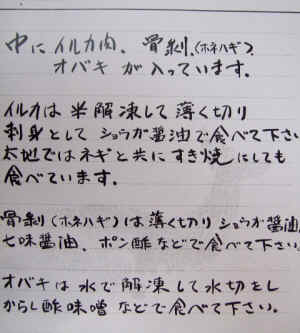 中に イルカ肉、骨剥、(ホネハギ)、
オバキ が入っています。
イルカは 半解凍して 薄く切り
刺身として ショウガ醤油で食べて下さい
太地ではネギと共に すき焼にしても
食べています。
骨剥(ホネハギ)は薄く切り ショウガ醤油、
七味醤油、ポン酢などで食べて下さい。
オバキは水で解凍して水切をし
からし酢味噌などで食べて下さい。